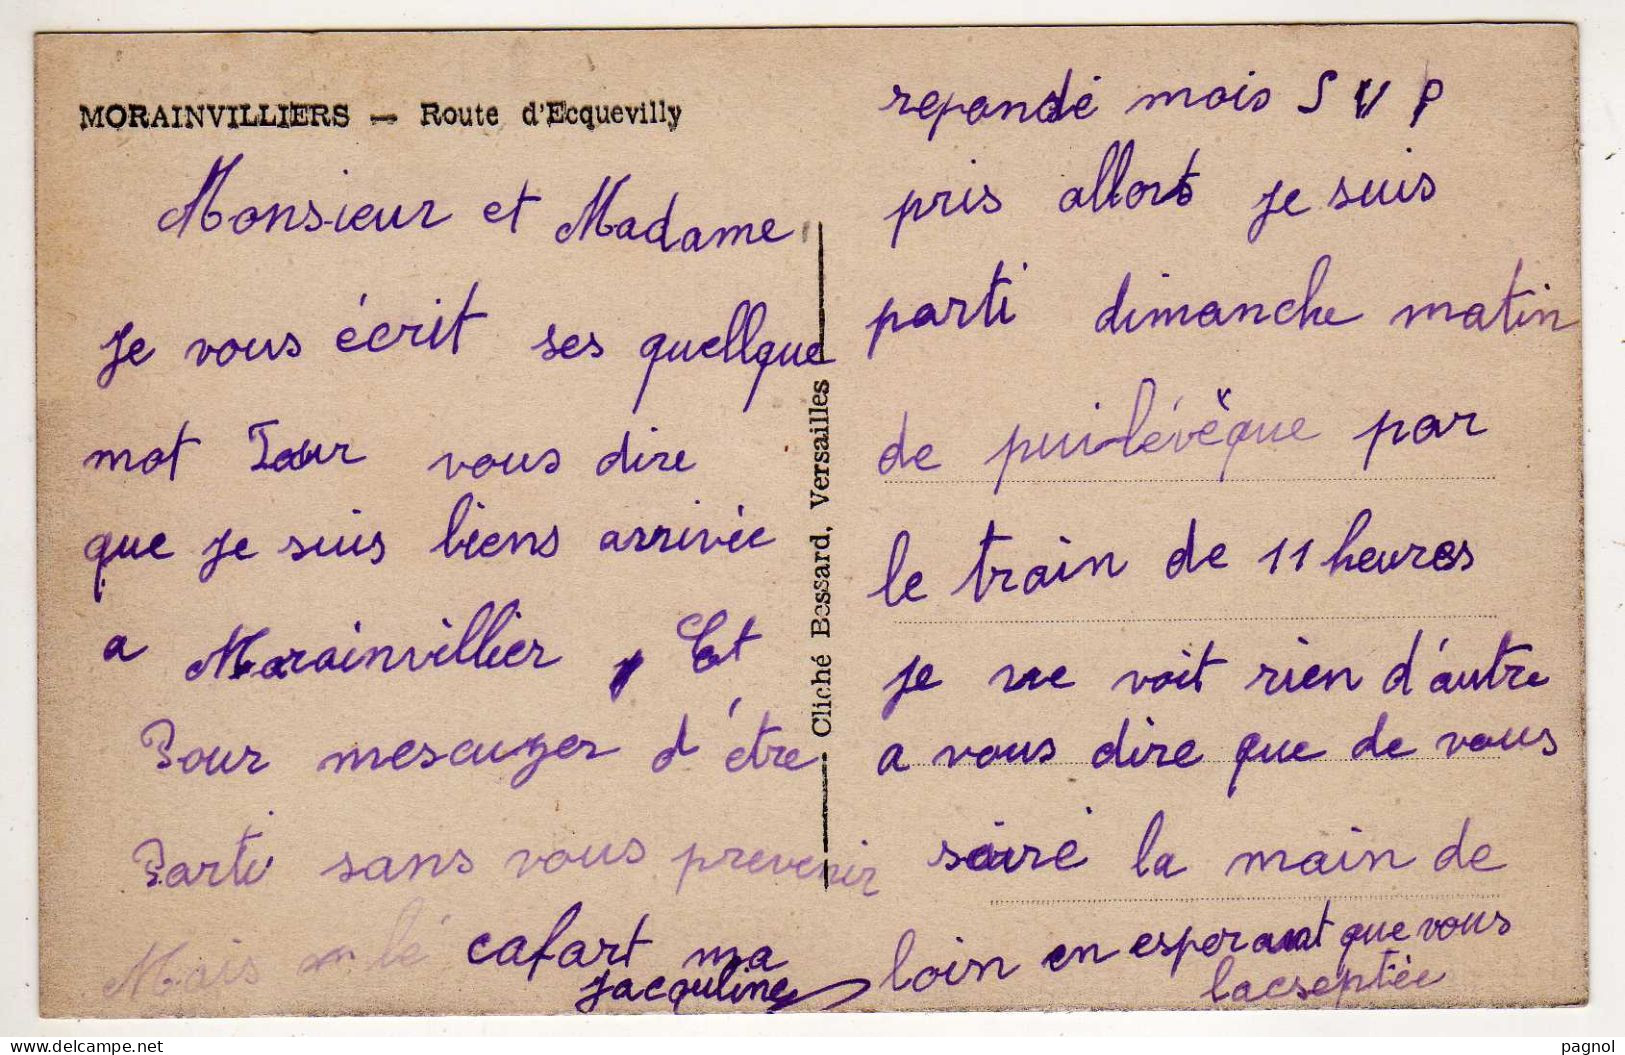 MORAINVILLIERS — Route d'Ecquevilly
Monsieur et Madame
je vous écrit ses quellque
mot Pour vous dire
que je suis biens arrivée
a Morainvillier, Et
Pour mescuzer d'être
Parti sans vous prevenir
Mais lé cafart ma
Jacquline
Cliché Bessard, Versailles
repondé mois S V P
pris allors je suis
parti dimanche matin
de puilévêque par
le train de 11 heures
je ne voit rien d'autre
a vous dire que de vous
sairé la main de
loin en esperant que vous
lacseptée
pagnol
delcampe.net